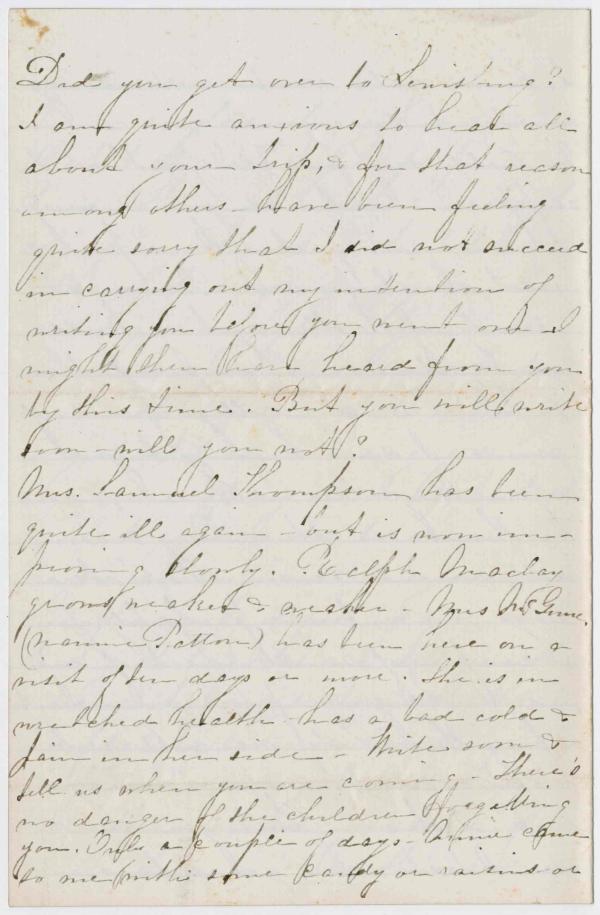 Did you get over to Lewisburg?
I am quite anxious to hear all
about your trip, & for that reason
among others - have been feeling
quite sorry that I did not succeed
in carrying out my intention of
writing you before you went on - I
might then have heard from you
by this time. But you will write
soon - will you not?
Mrs. Samuel Thompson has been
quite ill again - but is now im-
proving slowly. Ralph Maclay
grows weaker & weaker - Mrs
(Nannie Patton) has been here on a
visit of ten days or more. She is in
wretched health - has a bad cold &
pain in her side - Write soon &
tell us when you are coming - There's
no danger of the children forgetting
you. Only a couple of days - Annie came
to me with some candy or raisins or